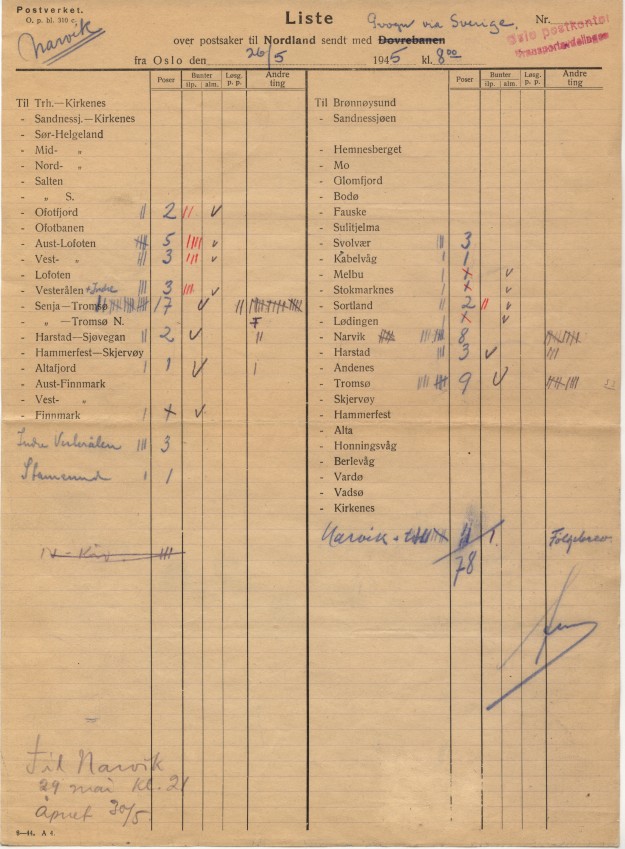 Postverket.
O. p. bl. 310 c.
Narvik
Liste
via Sverige.
Nr.
Oslo postkontor
Transportavdelingen
over postsaker til Nordland sendt med Dovrebanen
fra Oslo den 26/5 1945 kl. 8 00
Poser Bunter Løsg. p. p. Andre ting Poser Bunter Løsg. p. p. Andre ting
ilp. alm. ilp. alm.
Til Trh.—Kirkenes
- Sandnessj.—Kirkenes
- Sør-Helgeland
- Mid- „
- Nord- „
- Salten
- „ S.
- Ofotfjord || 2 || ✓
- Ofotbanen
- Aust-Lofoten 5 |||| ✓
- Vest- „ ||| 3 ||| ✓
- Lofoten
- Vesterålen + Indre ||| 3 ||| ✓
- Senja—Tromsø 17 ✓ ||
- „ —Tromsø N.
- Harstad—Sjøvegan || 2 ✓ ||
- Hammerfest—Skjervøy
- Altafjord | 1 ✓ |
- Aust-Finnmark
- Vest- „
- Finnmark | ✓
Indre Vesterålen ||| 3
Stamsund | 1
Til Brønnøysund
- Sandnessjøen
- Hemnesberget
- Mo
- Glomfjord
- Bodø
- Fauske
- Sulitjelma
- Svolvær ||| 3
- Kabelvåg | 1
- Melbu | ✓
- Stokmarknes | ✓
- Sortland || 2 || ✓
- Lødingen | ✓
- Narvik 8
- Harstad ||| 3 ✓ |||
- Andenes
- Tromsø 9 ✓
- Skjervøy
- Hammerfest
- Alta
- Honningsvåg
- Berlevåg
- Vardø
- Vadsø
- Kirkenes
Narvik Følgebrev
78
Til Narvik
29 mai kl. 21
Åpnet 30/5